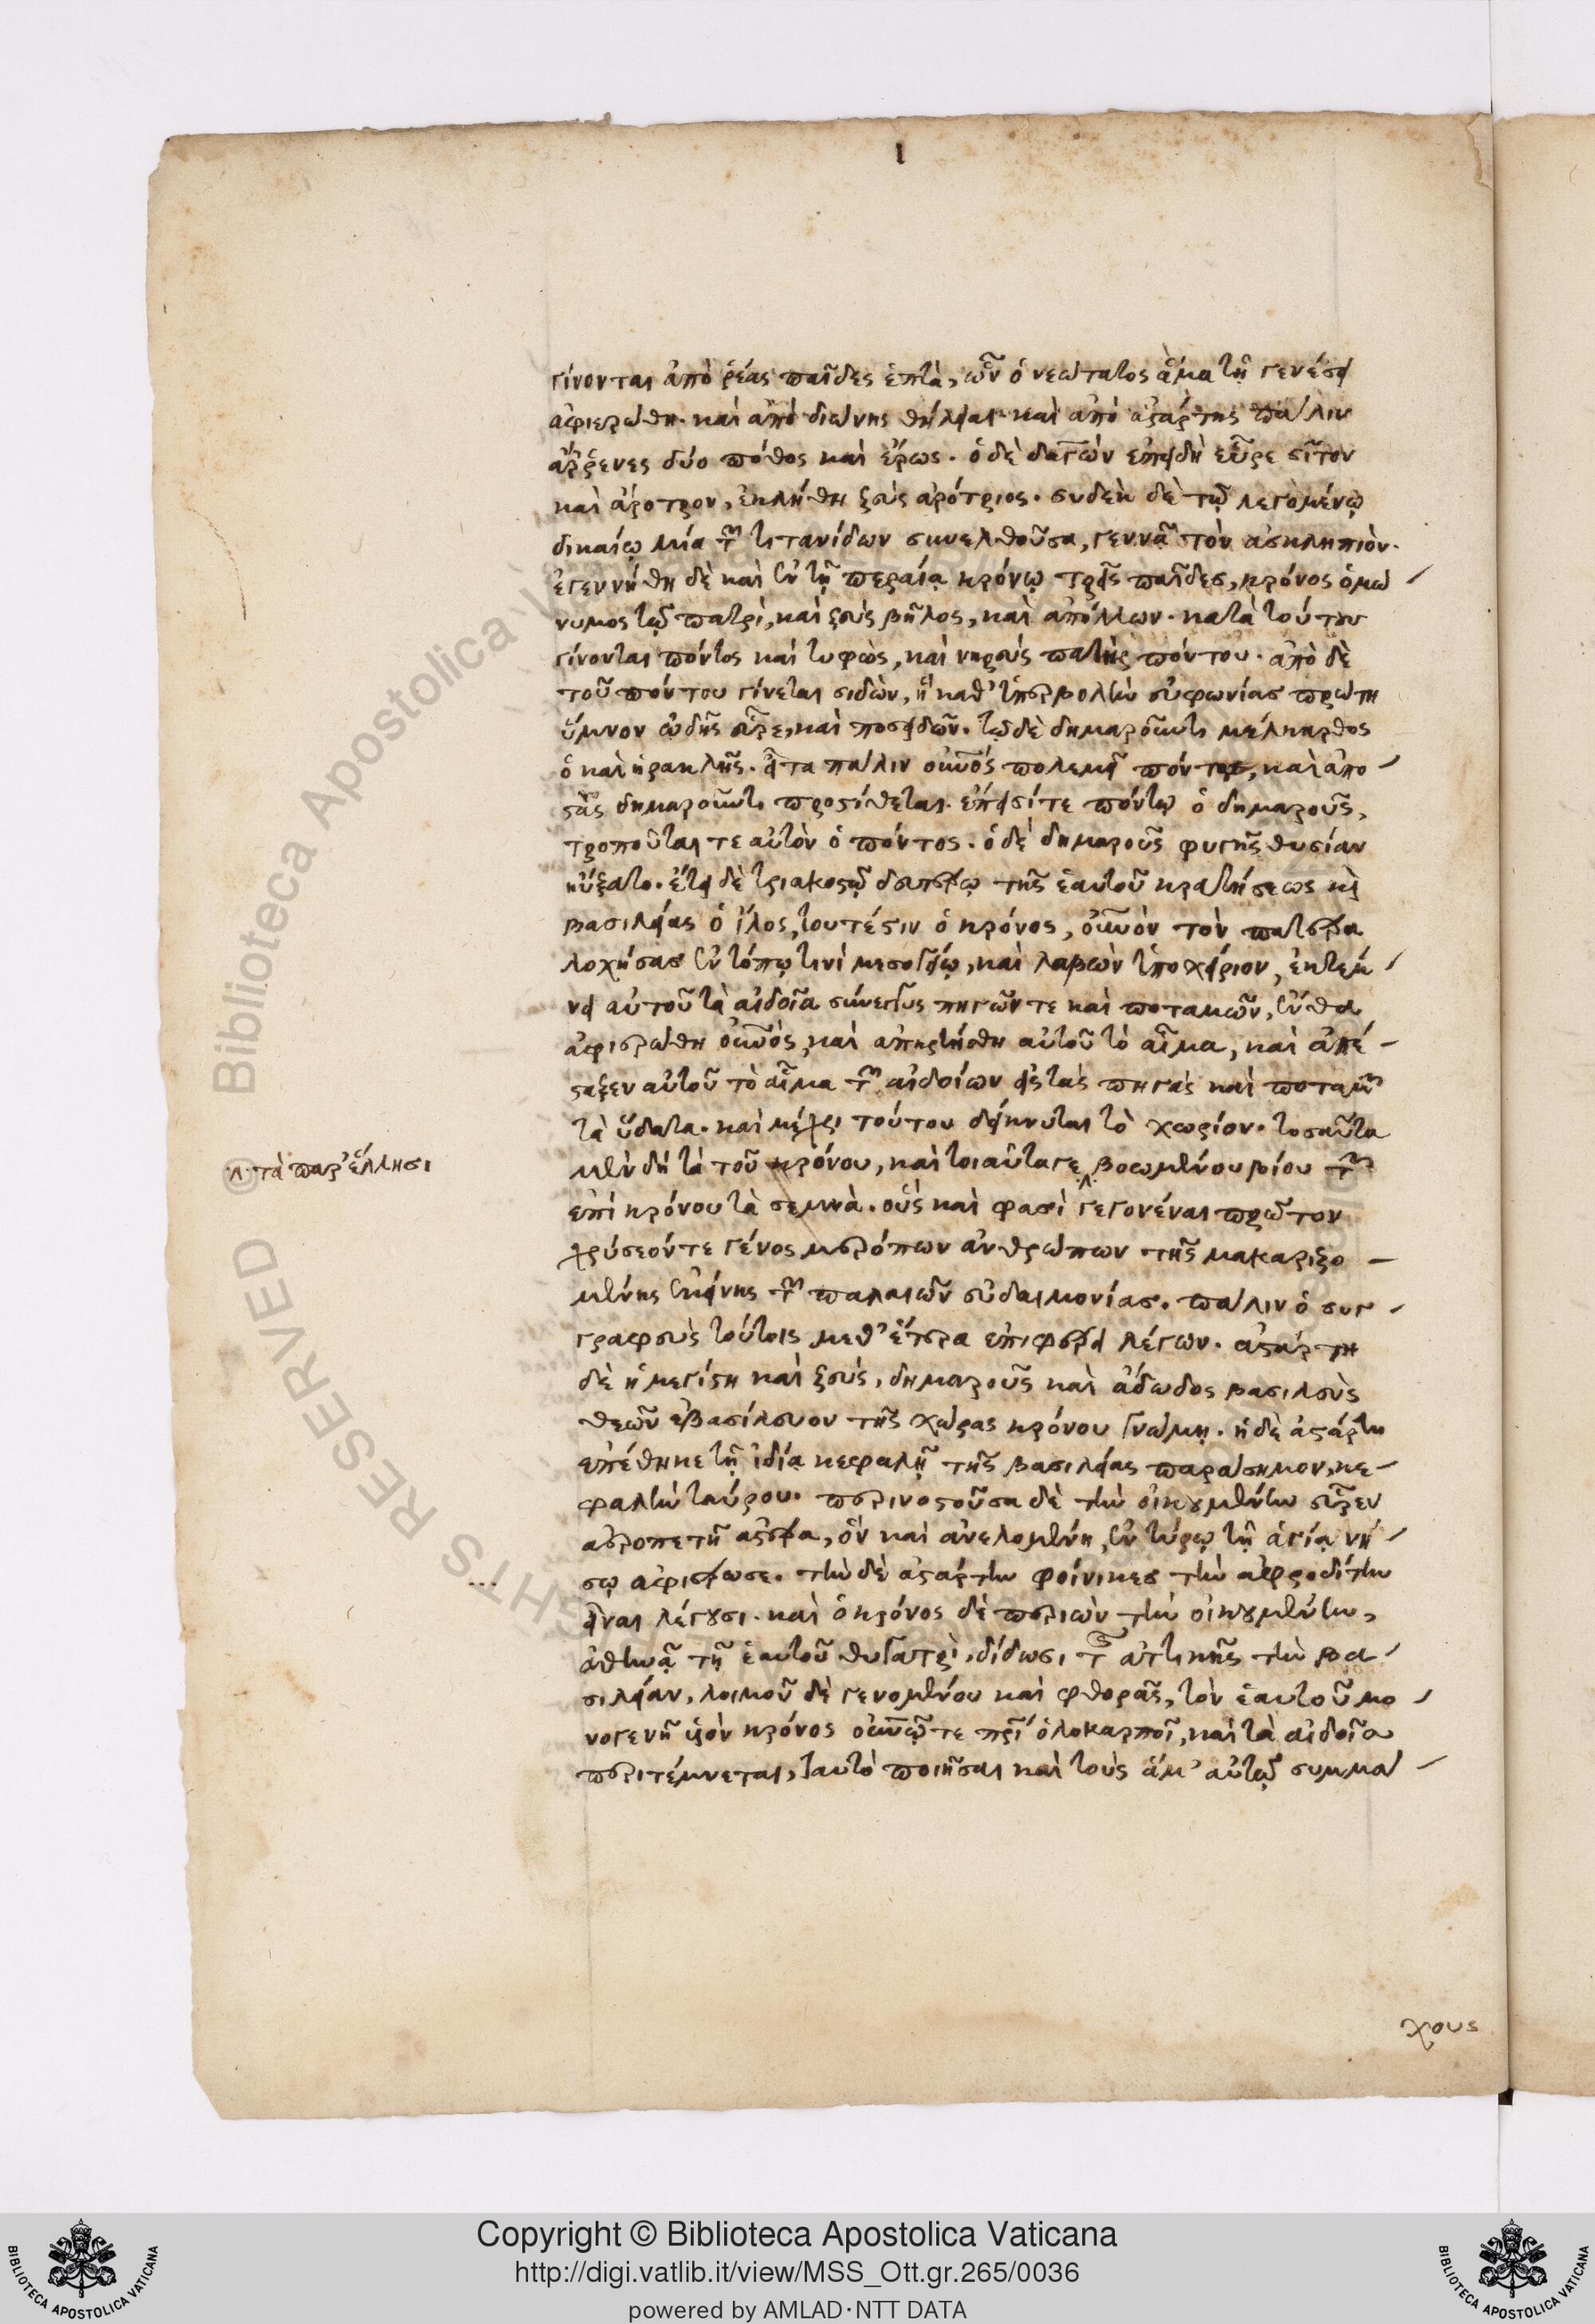 γίνονται ἀπὸ ῥέας παῖδες ἑπτὰ, ὧν ὁ νεώτατος ἅμα τῇ γενέσει
ἀφιερώθη. καὶ ἀπὸ διώνης θήλειαι. καὶ ἀπὸ ἀστάρτης πάλιν
ἄῤῥενες δύο πόθος καὶ ἔρως. ὁ δὲ δαγὼν ἐπειδὴ εὗρε σῖτον
καὶ ἄροτρον, ἐκλήθη ζεὺς ἀρότριος. συδὲκ δὲ τῷ λεγομένῳ
δικαίῳ μία τῶν τιτανίδων συνελθοῦσα, γεννᾷ τὸν ἀσκληπιόν.
ἐγεννήθη δὲ καὶ ἐν τῇ περαίᾳ κρόνῳ τρεῖς παῖδες, κρόνος ὁμώ
νυμος τῷ πατρὶ, καὶ ζεὺς βῆλος, καὶ ἀπόλλων. κατὰ τούτου
γίνονται πόντος καὶ τυφὼς, καὶ νηρεὺς πατὴρ πόντου. ἀπὸ δὲ
τοῦ πόντου γίνεται σιδὼν, ἣ καθ’ ὑπερβολὴν εὐφωνίας πρώτη
ὕμνον ᾠδῆς εὗρε, καὶ ποσειδῶν. τῷ δὲ δημαροῦντι μέλκαρθος
ὁ καὶ ἡρακλῆς. εἶτα πάλιν οὐνὸς πολεμεῖ πόντῳ, καὶ ἀπο
στὰς δημαροῦντι προστίθεται. ἔπεισί τε πόντῳ ὁ δημαροῦς,
τροποῦται τε αὐτὸν ὁ πόντος. ὁ δὲ δημαροῦς φυγῆς θυσίαν
ηὔξατο. ἔτει δὲ τριακοστῷ δευτέρῳ τῆς ἑαυτοῦ κρατήσεως καὶ
βασιλείας ὁ ἴλος, τουτέστιν ὁ κρόνος, οὐνὸν τὸν πατέρα
λοχήσας ἐν τόπῳ τινὶ μεσογείῳ, καὶ λαβὼν ὑποχείριον, ἐκτέμ
νει αὐτοῦ τὰ αἰδοῖα σύνεγγυς πηγῶν τε καὶ ποταμῶν, ἔνθα
ἀφιερώθη οὐνὸς, καὶ ἀπηρτίσθη αὐτοῦ τὸ αἷμα, καὶ ἀπέ
σταξεν αὐτοῦ τὸ αἷμα τῶν αἰδοίων εἰς τὰς πηγὰς καὶ ποταμῶν
τὰ ὕδατα. καὶ μέχρι τούτου δείκνυται τὸ χωρίον. τοσαῦτα
μὲν δὴ τὰ τοῦ κρόνου, καὶ τοιαῦτα γε βοωμένου βίου τῶν
⁁ τὰ παρ’ ἕλλησι
ἐπὶ κρόνου τὰ σεμνὰ. οὓς καὶ φασὶ γεγονέναι πρῶτον
χρύσεόν τε γένος μερόπων ἀνθρώπων τῆς μακαριζο
μένης ἐκείνης τῶν παλαιῶν εὐδαιμονίας. πάλιν ὁ συγ
γραφεὺς τούτοις μεθ’ ἕτερα ἐπιφέρει λέγων. ἀστάρτη
δὲ ἡ μεγίστη καὶ ζεὺς, δημαροῦς καὶ ἄδωδος βασιλεὺς
θεῶν ἐβασίλευον τῆς χώρας κρόνου γνώμῃ. ἡ δὲ ἀστάρτη
ἐπέθηκε τῇ ἰδίᾳ κεφαλῇ τῆς βασιλείας παράσημον, κε
φαλὴν ταύρου. περινοστοῦσα δὲ τὴν οἰκουμένην εὗρεν
ἀεροπετῆ ἀστέρα, ὃν καὶ ἀνελομένη, ἐν τύρῳ τῇ ἁγίᾳ νή
σῳ ἀφιέρωσε. τὴν δὲ ἀστάρτην φοίνικες τὴν ἀφροδίτην
εἶναι λέγουσι. καὶ ὁ κρόνος δὲ περιιὼν τὴν οἰκουμένην,
ἀθηνᾷ τῇ ἑαυτοῦ θυγατρὶ, δίδωσι τῆς ἀττικῆς τὴν βα
σιλείαν, λοιμοῦ δὲ γενομένου καὶ φθορᾶς, τὸν ἑαυτοῦ μο
νογενῆ υἱὸν κρόνος οὐνῷ τε πρὶ ὁλοκαρποῖ, καὶ τὰ αἰδοῖα
περιτέμνεται, ταυτὸ ποιῆσαι καὶ τοὺς ἅμ’ αὐτῷ συμμα
χους
Copyright © Biblioteca Apostolica Vaticana
http://digi.vatlib.it/view/MSS_Ott.gr.265/0036
powered by AMLAD·NTT DATA